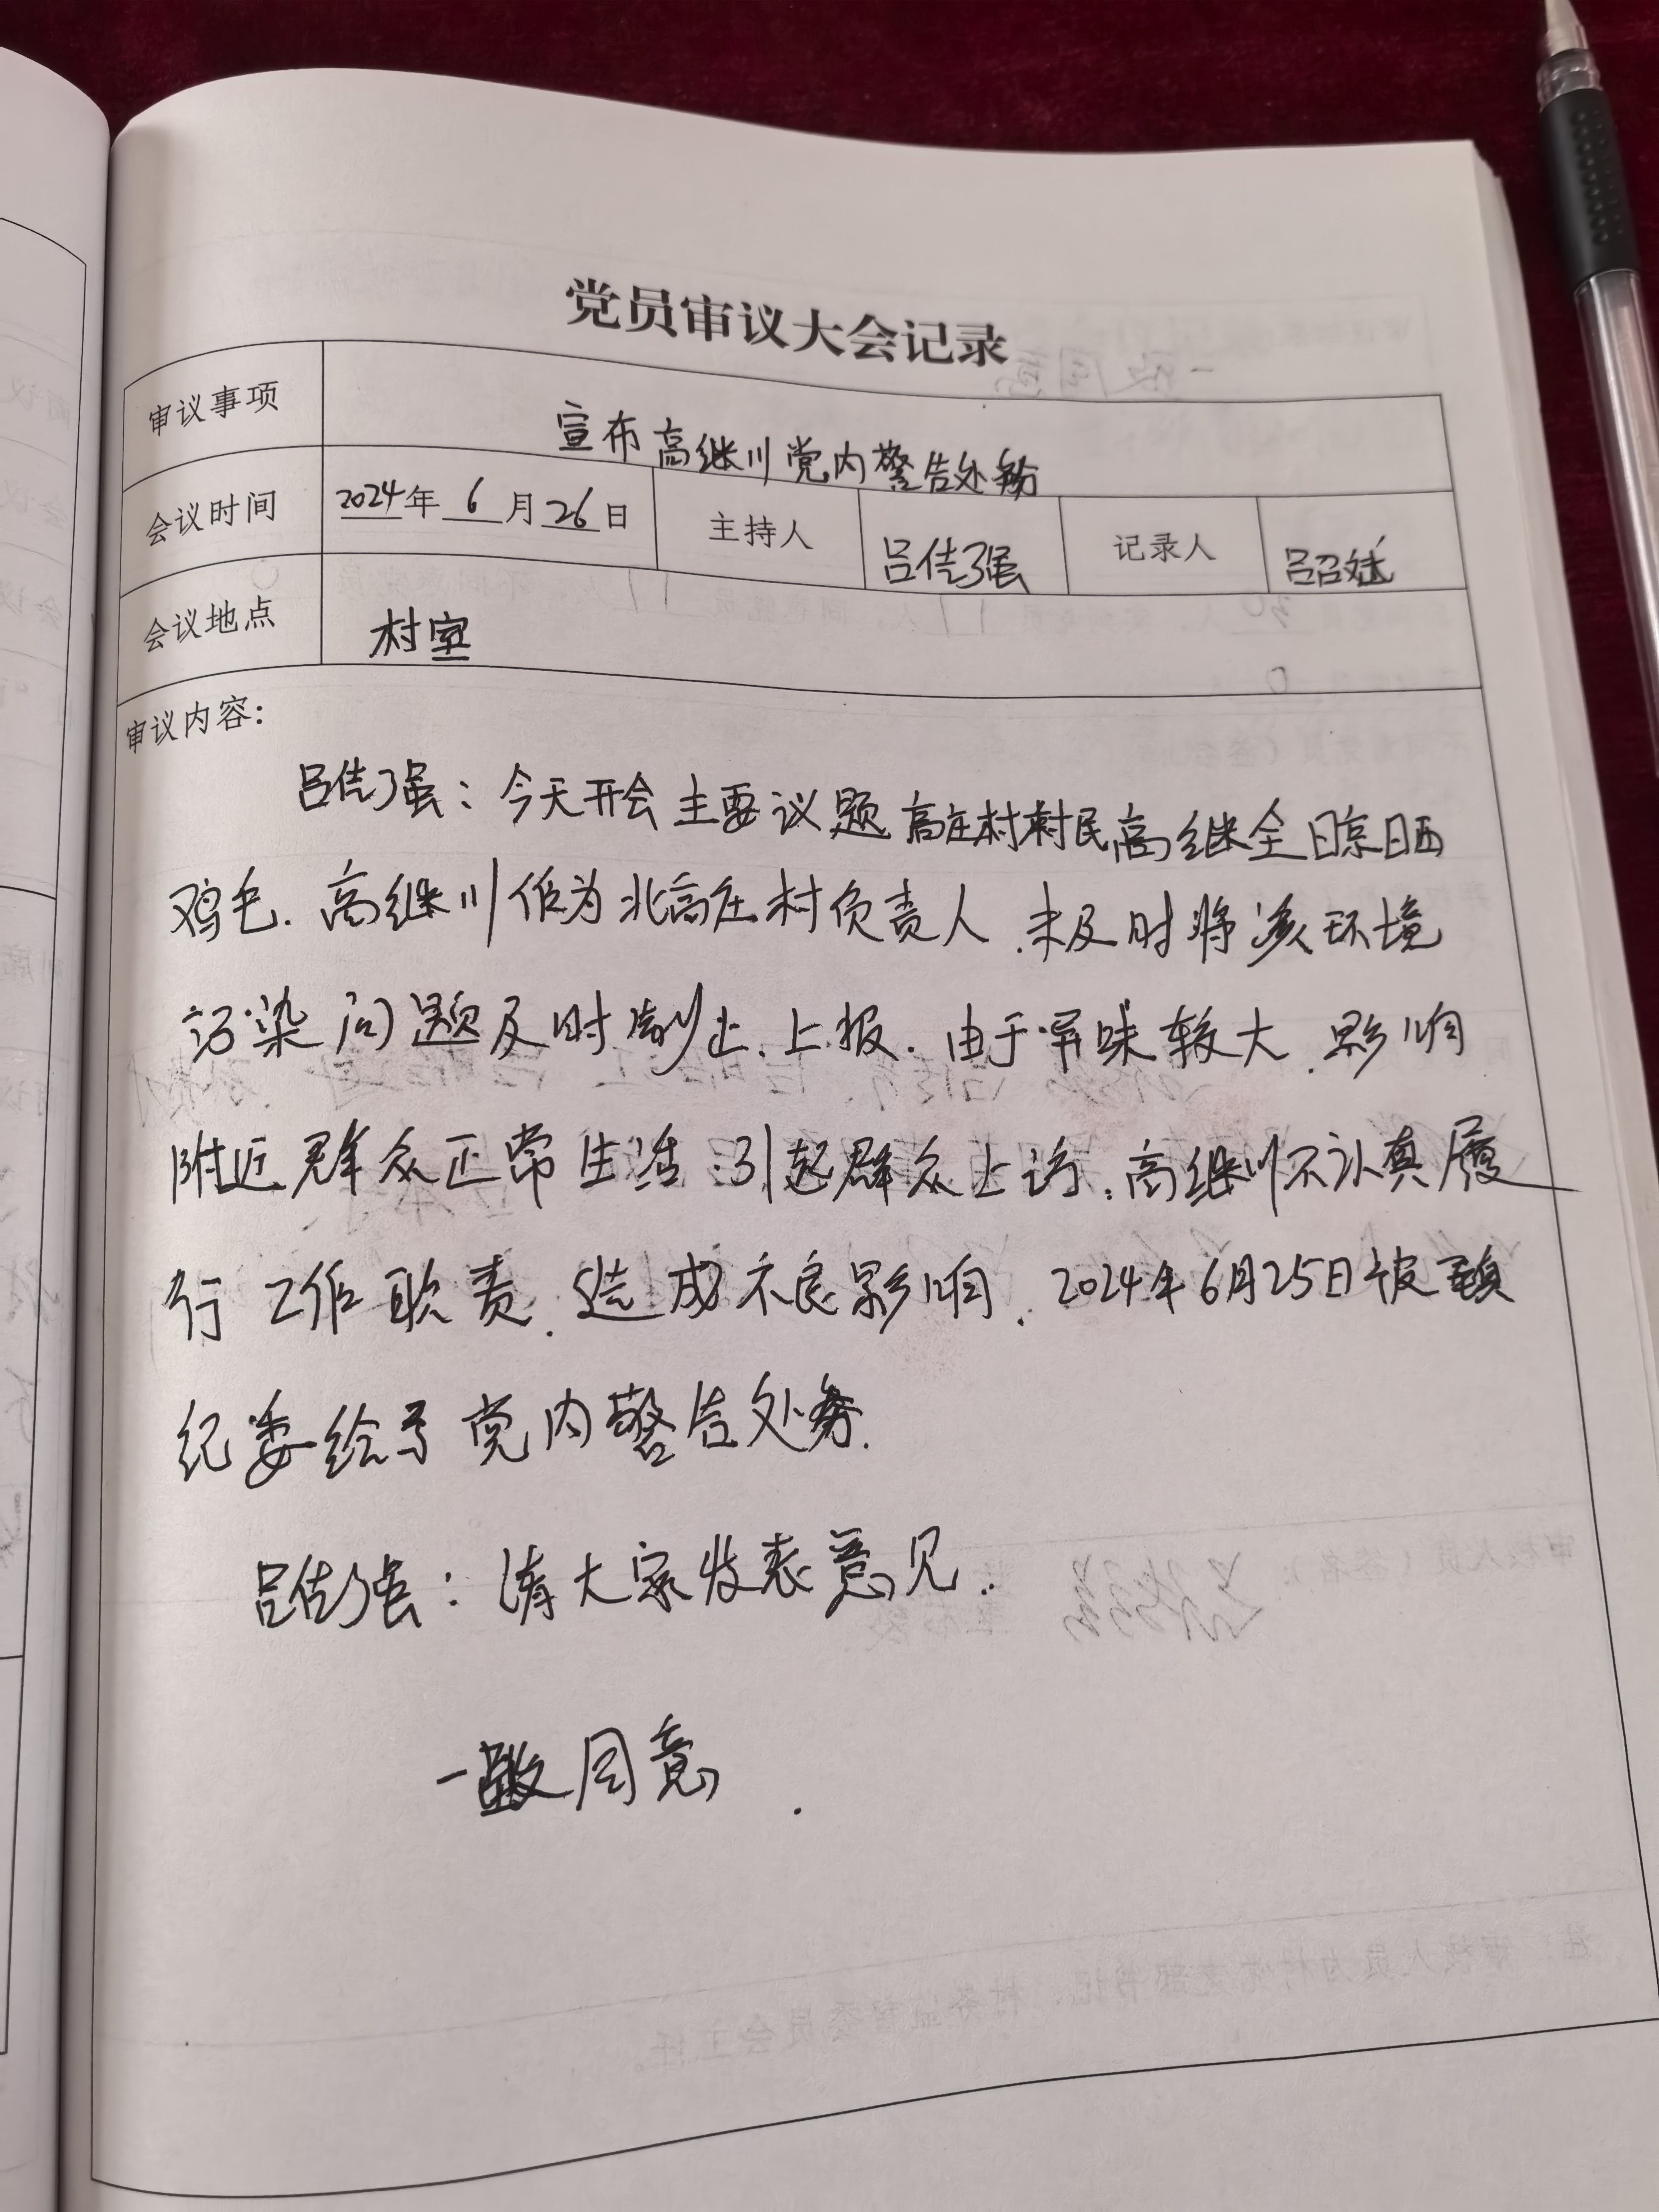 党员审议大会记录
审议事项 宣布高继川党内警告处分
会议时间 2024年 6 月 26 日 主持人 吕佳强 记录人 吕召斌
会议地点 村室
审议内容：
吕佳强：今天开会主要议题高庄村村民高继全晾晒
鸡毛.高继川作为北高庄村负责人.未及时将该环境
污染问题及时制止.上报.由于异味较大.影响
附近群众正常生活.引起群众上访.高继川不认真履
行工作职责.造成不良影响.2024年6月25日被镇
纪委给予党内警告处分.
吕佳强：请大家发表意见.
一致同意.